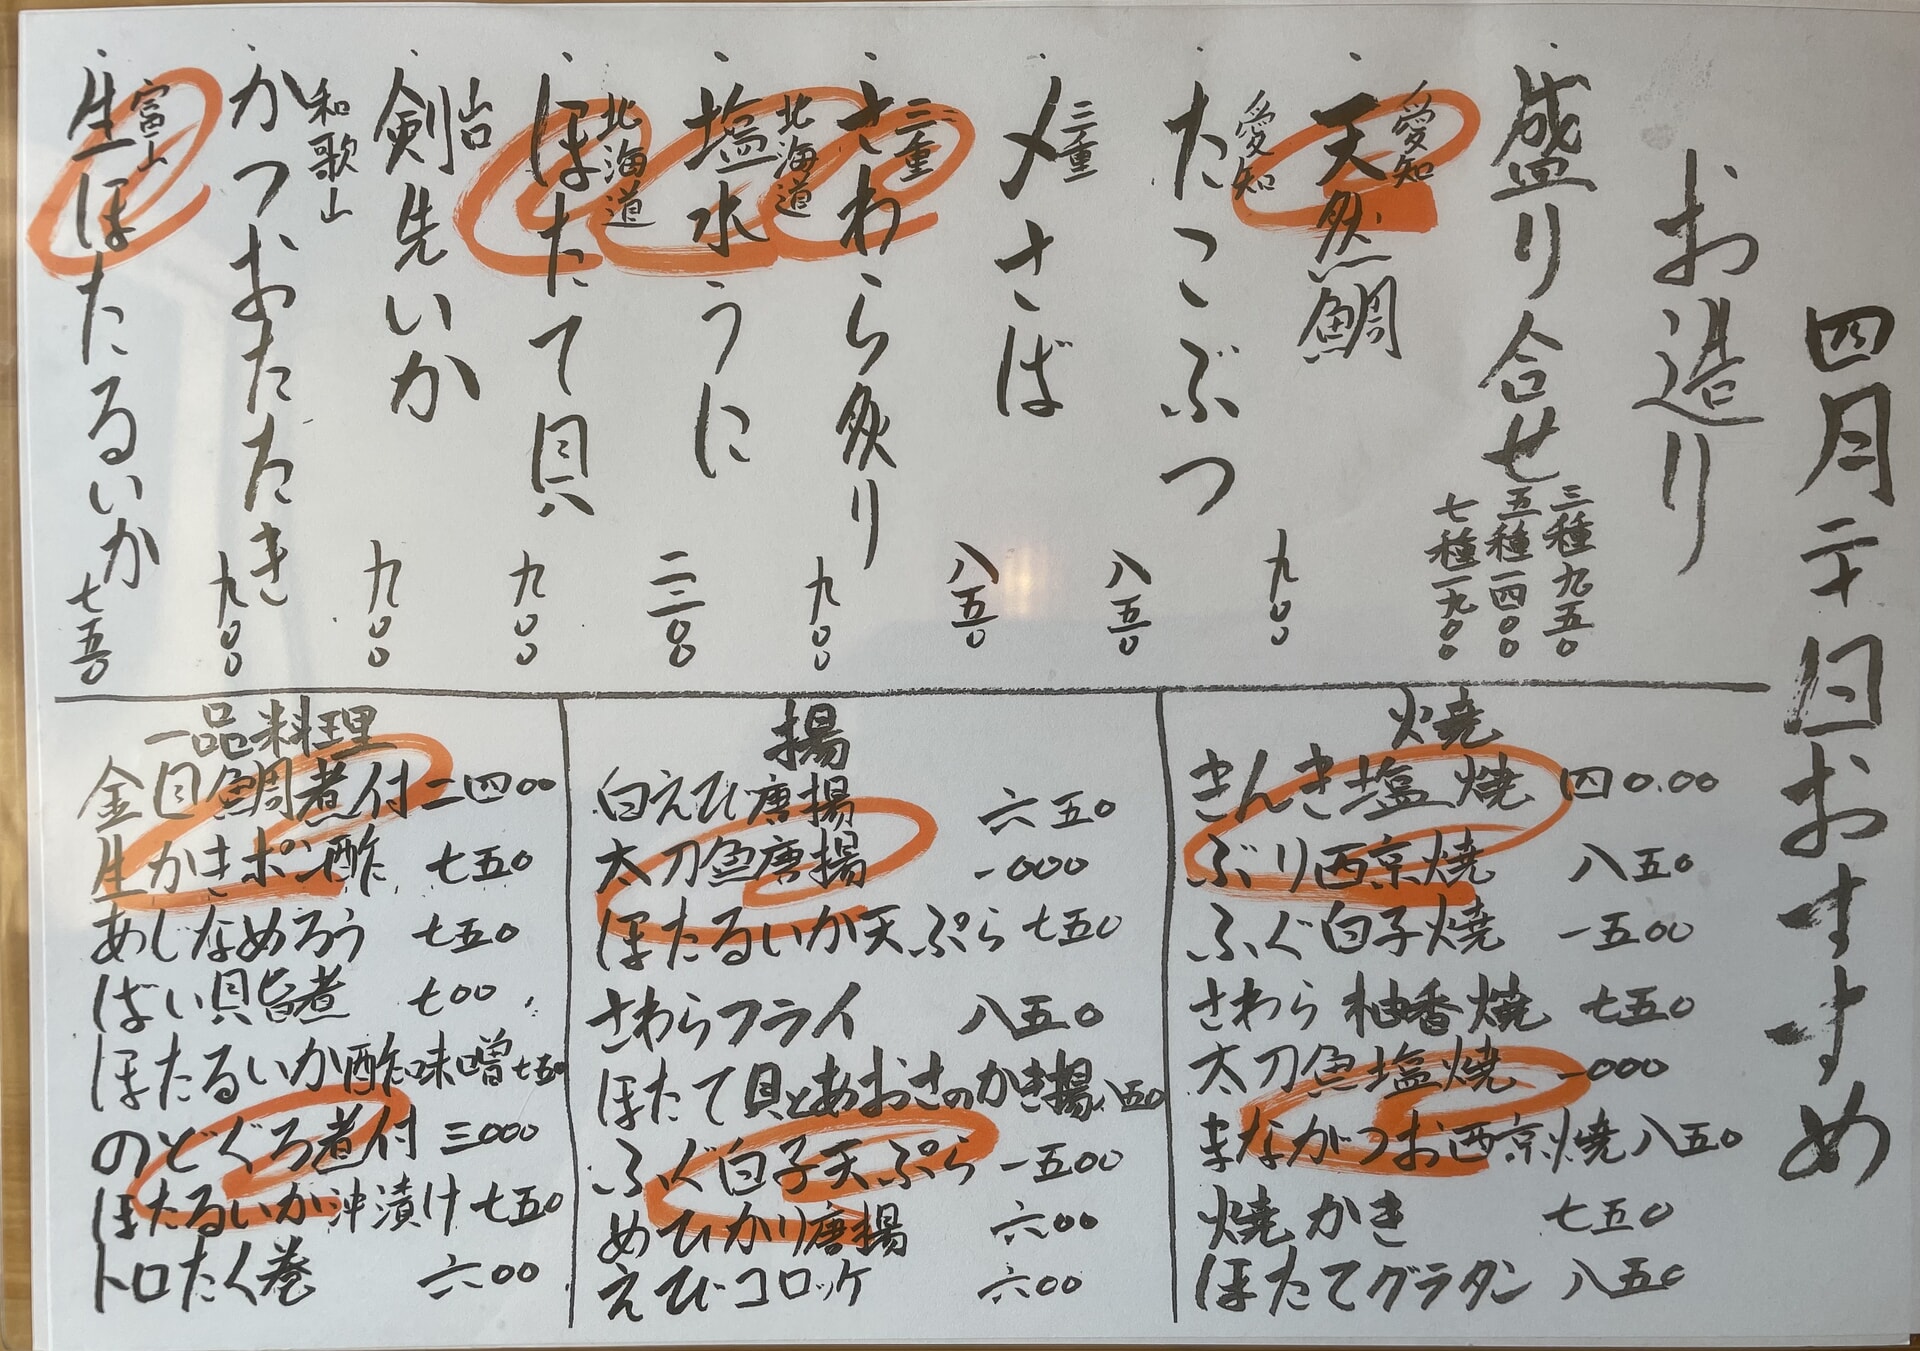 四月二十日おすすめ
お造り
盛り合せ
三種九五〇
五種一四〇〇
七種一九〇〇
愛知
天然鯛 九〇〇
愛知
たこぶつ 八五〇
三重
〆さば 八五〇
三重
さわら炙り 九〇〇
北海道
塩水うに
北海道
ほたて貝 九〇〇
剣先いか 九〇〇
和歌山
かつおたたき 九〇〇
富山
生ほたるいか 七五〇
焼
きんき塩焼 四〇.〇〇
ぶり西京焼 八五〇
ふぐ白子焼 一五〇〇
さわら柚香焼 七五〇
太刀魚塩焼 一〇〇〇
まながつお西京焼 八五〇
焼かき 七五〇
ほたてグラタン 八五〇
揚
白えび唐揚 六五〇
太刀魚唐揚 一〇〇〇
ほたるいか天ぷら 七五〇
さわらフライ 八五〇
ほたて貝とあおさのかき揚 八五〇
ふぐ白子天ぷら 一五〇〇
めひかり唐揚 六〇〇
えびコロッケ 六〇〇
一品料理
金目鯛煮付 二四〇〇
生かきポン酢 七五〇
あじなめろう 七五〇
ばい貝旨煮 七〇〇
ほたるいか酢味噌 七五〇
のどぐろ煮付 三〇〇〇
ほたるいか沖漬け 七五〇
トロたく巻 六〇〇